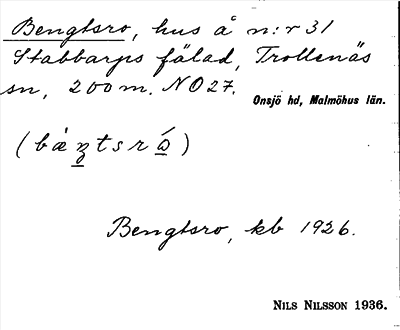 Bengtsro, hus å n:r 31
Stabbarps fälad, Trollenäs
sn, 200 m. NO 27.
Onsjö hd, Malmöhus län.
(bæ̀ʒtsrώ)
Bengtsro, kb 1926.
NILS NILSSON 1936.